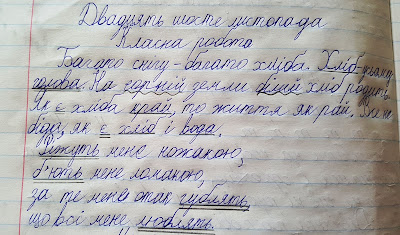 Двадцять шосте листопада
Класна робота
Багато снігу - багато хліба. Хліб - усьому
голова. На чорній землі білий хліб родить.
Як є хліба край, то життя як рай. Не
біда, як є хліб і вода.
Ріжуть мене ножакою,
б'ють мене ломакою,
за те мене отак гублять,
що всі мене люблять.